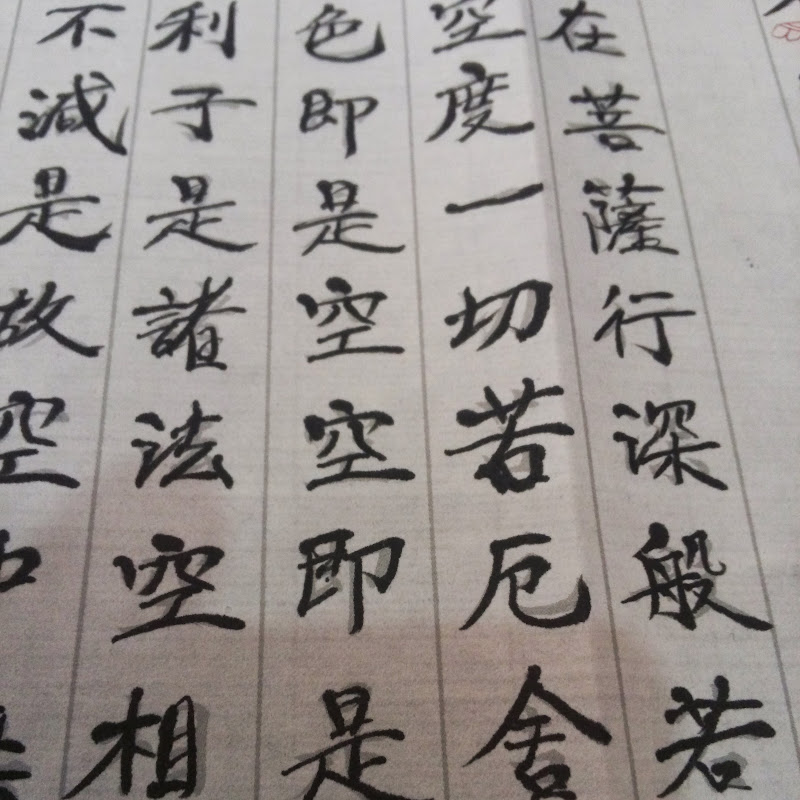 在菩薩行深般若
空度一切若厄舍
色即是空空即是
利子是諸法空相
不減是故空中